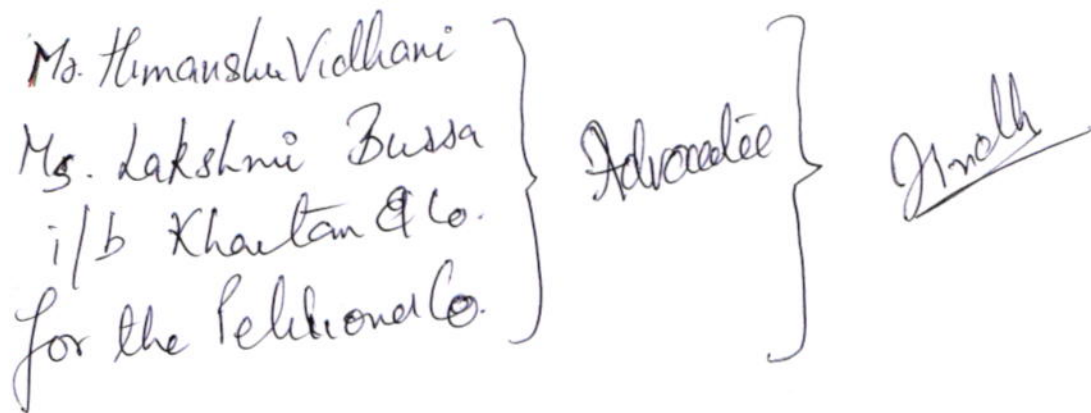 Mr. Himanshu Vidhani
Ms. Lakshmi Bussa
i/b Khaitan & Co.
for the Petitioner Co.
Advocate